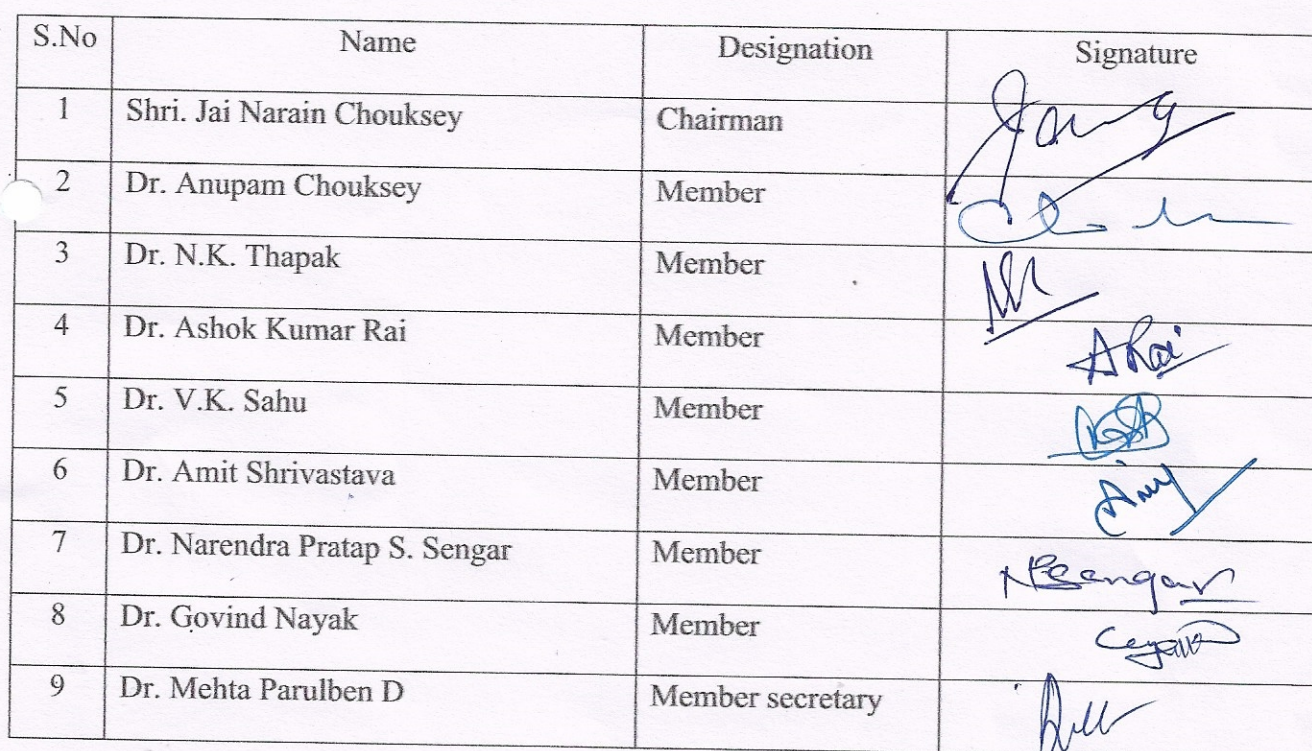 S.No Name Designation Signature
1 Shri. Jai Narain Chouksey Chairman
2 Dr. Anupam Chouksey Member
3 Dr. N.K. Thapak Member
4 Dr. Ashok Kumar Rai Member ARai
5 Dr. V.K. Sahu Member
6 Dr. Amit Shrivastava Member
7 Dr. Narendra Pratap S. Sengar Member NPSengar
8 Dr. Govind Nayak Member
9 Dr. Mehta Parulben D Member secretary